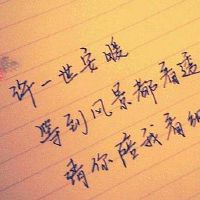 许一世安暖
等到风景都看透
请你陪我看细